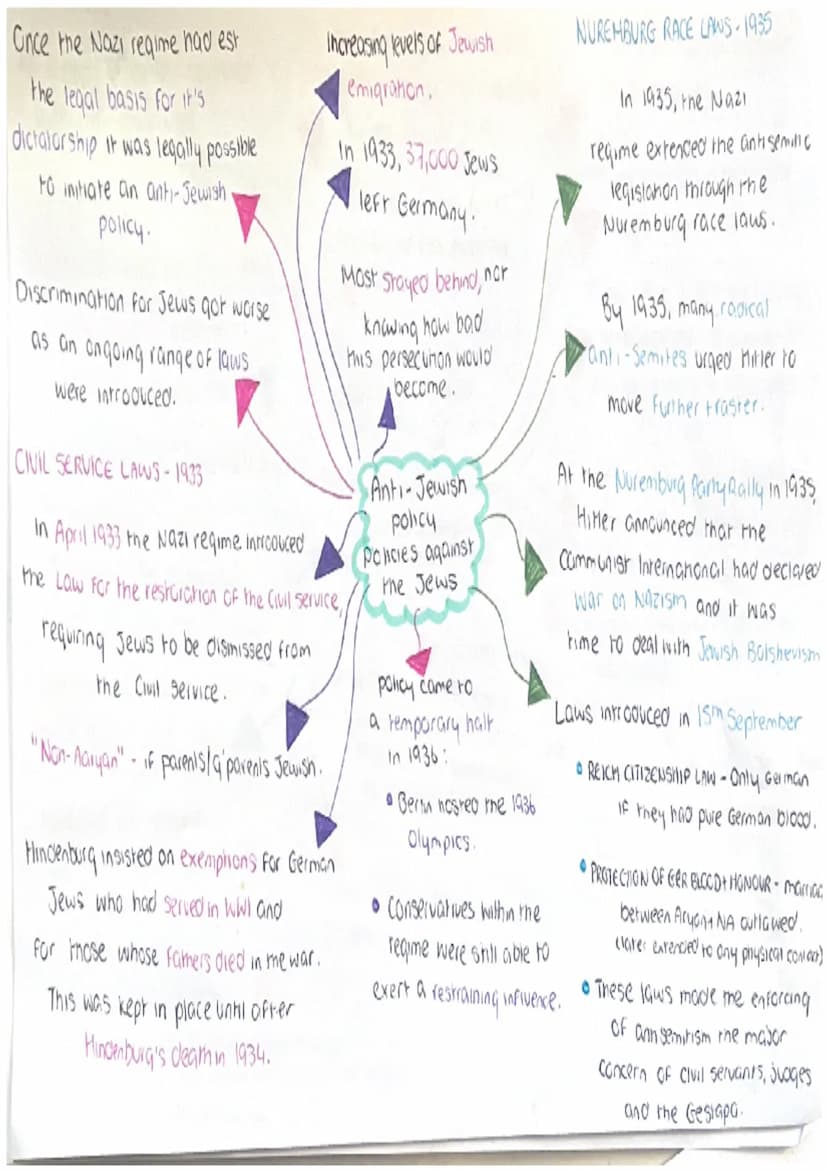 Once the Nazi regime had est
the legal basis for it's
dictatorship it was legally possible
to initiate an anti-Jewish
policy.
Discrimination for Jews got worse
as an ongoing range of laws
were introduced.
CIVIL SERVICE LAWS - 1933
In April 1933 the Nazi regime introduced
the Law for the restoration of the Civil service,
requiring Jews to be dismissed from
the Civil Service.
"Non-Aaryan" - if parents/g'parents Jewish.
Hindenburg insisted on exemptions for German
Jews who had served in WWI and
for those whose fathers died in the war.
This was kept in place until after
Hindenburg's death in 1934.
Increasing levels of Jewish
emigration.
In 1933, 37,000 Jews
left Germany.
Most stayed behind, not
knowing how bad
this persecution would
become.
Anti-Jewish
policy
policies against
the Jews
policy came to
a temporary halt
in 1936:
Berlin hosted the 1936
Olympics.
Conservatives within the
regime were still able to
exert a restraining influence.
NUREMBURG RACE LAWS - 1935
In 1935, the Nazi
regime extended the antisemitic
legislation through the
Nuremburg race laws.
By 1935, many radical
anti-Semites urged Hitler to
move further + faster.
At the Nuremburg Party Rally in 1935,
Hitler announced that the
Communist International had declared
war on Nazism and it was
time to deal with Jewish Bolshevism
Laws introduced in 15th September
REICH CITIZENSHIP LAW - Only German
if they had pure German blood.
PROTECTION OF GER BLOOD + HONOUR - marriage
between Aryan + NA outlawed.
(later extended to any physical contact)
These laws made the enforcing
of antisemitism the major
concern of civil servants, judges
and the Gestapo.